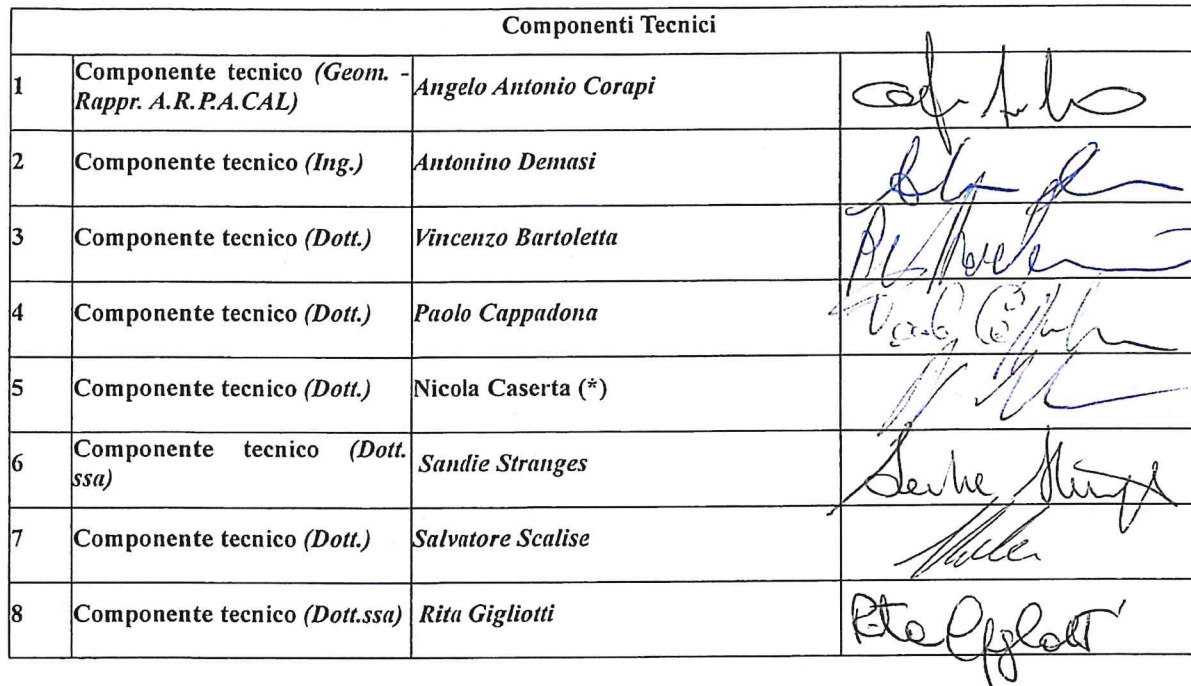 Componenti Tecnici
1 Componente tecnico (Geom. - Rappr. A.R.P.A.CAL) Angelo Antonio Corapi
2 Componente tecnico (Ing.) Antonino Demasi
3 Componente tecnico (Dott.) Vincenzo Bartoletta
4 Componente tecnico (Dott.) Paolo Cappadona
5 Componente tecnico (Dott.) Nicola Caserta (*)
6 Componente tecnico (Dott. ssa) Sandie Stranges
7 Componente tecnico (Dott.) Salvatore Scalise
8 Componente tecnico (Dott.ssa) Rita Gigliotti